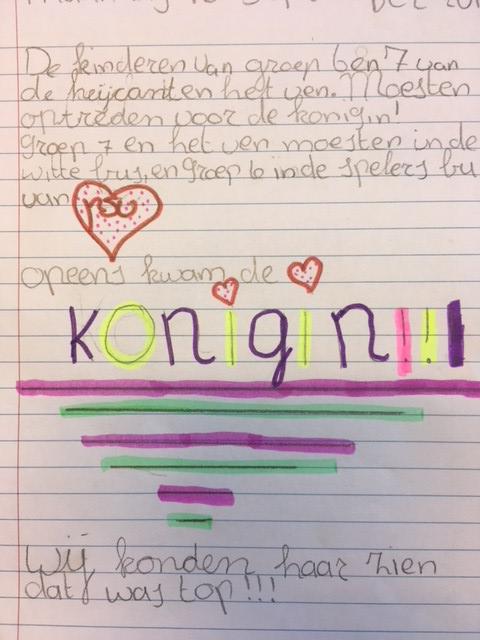 De kinderen van groep 6 en 7 van
de heijcanten het ven. Moesten
optreden voor de konigin!
groep 7 en het ven moesten in de
witte bus, en groep 6 in de spelers bu
van psv
opeens kwam de
konigin!!!
Wij konden haar zien
dat was top!!!